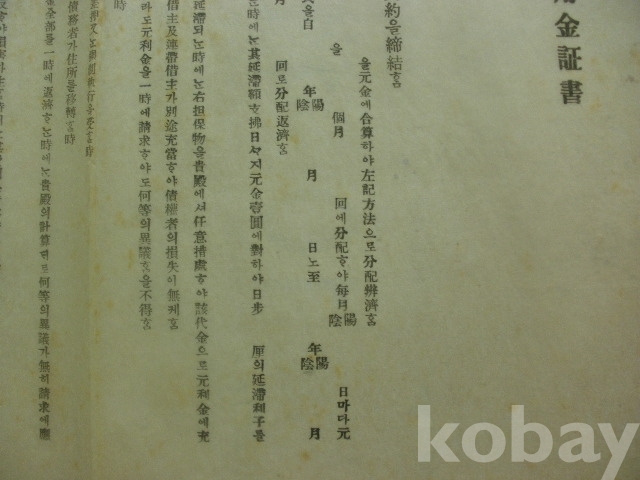 用金証書
約을締結홈
을元金에合算하야左記方法으로分配辨濟홈
을 個月 回에分配하야每月陽陰 日마다元
을自 年陽陰 月 日노至 年陽陰 月
回로分配返濟홈
滯되는時에는其延滯額을拂日까지元金壹圓에對하야日步 厘의延滯利子를
延滯되는時에는右担保物을貴殿에서任意措處하야該代金으로元利金에充
借主及連帶借主가別途充當하야債權者의損失이無케홈
라도元利金을一時에請求하야도何等의異議홈을不得홈
時
差押又는强制執行을受홀時
債務者가住所를移轉홀時
全部를一時에返濟하는時에는貴殿의計算대로何等의異議가無히請求에應
kobay